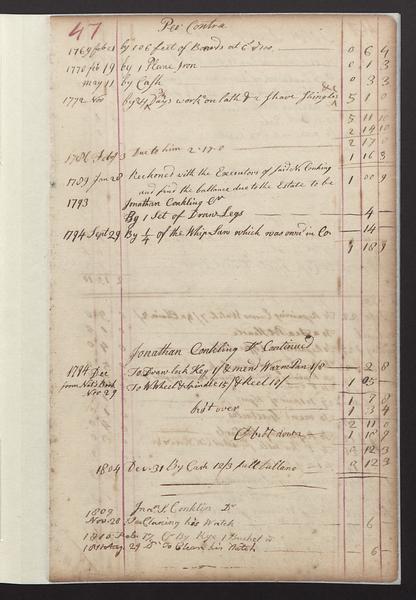 47 Per Contra
1769 feb by 106 feet of Boards at 6/ 0 6 4
1770 feb 19 by 1 Plane Iron 0 1 3
may 11 by Cash 0 3 3
1772 Nov by 24 Days work on lath & shave Shingles 5 1 0
5 11 10
2 14 10
2 17 0
3 Due to him 2-17-0 1 16 3
1789 Jan 28 Reckoned with the Executors of said Conkling
and find the ballance due to the Estate to be 1 00 9
1793 Jonathan Conkling Cr
By 1 Set of Draw Legs 4
1794 Sept 29 By 1/4 of the Whip Saw which was own'd in Co 14
1 18 9
Jonathan Conkling Dr Continued
1794 Dec To Draw lock Key 1/ & mend Warm Pan 1/8 2 8
from Nat's Book
Nov 29 To W Wheel & Spindle 15/ & Reel 10/ 1 05
1 7 8
brot over 1 3 4
2 11 0
Cr brot down 1 18 9
12 3
1804 Dec 31 By Cash 12/3 full Ballance 12 3
1809 Jno S. Conklin Dr
Nov. 28 To Cleaning his Watch 6
1810 Cr By Rye 1 Bushel
Aug 29 Dr To Clean his Watch 6